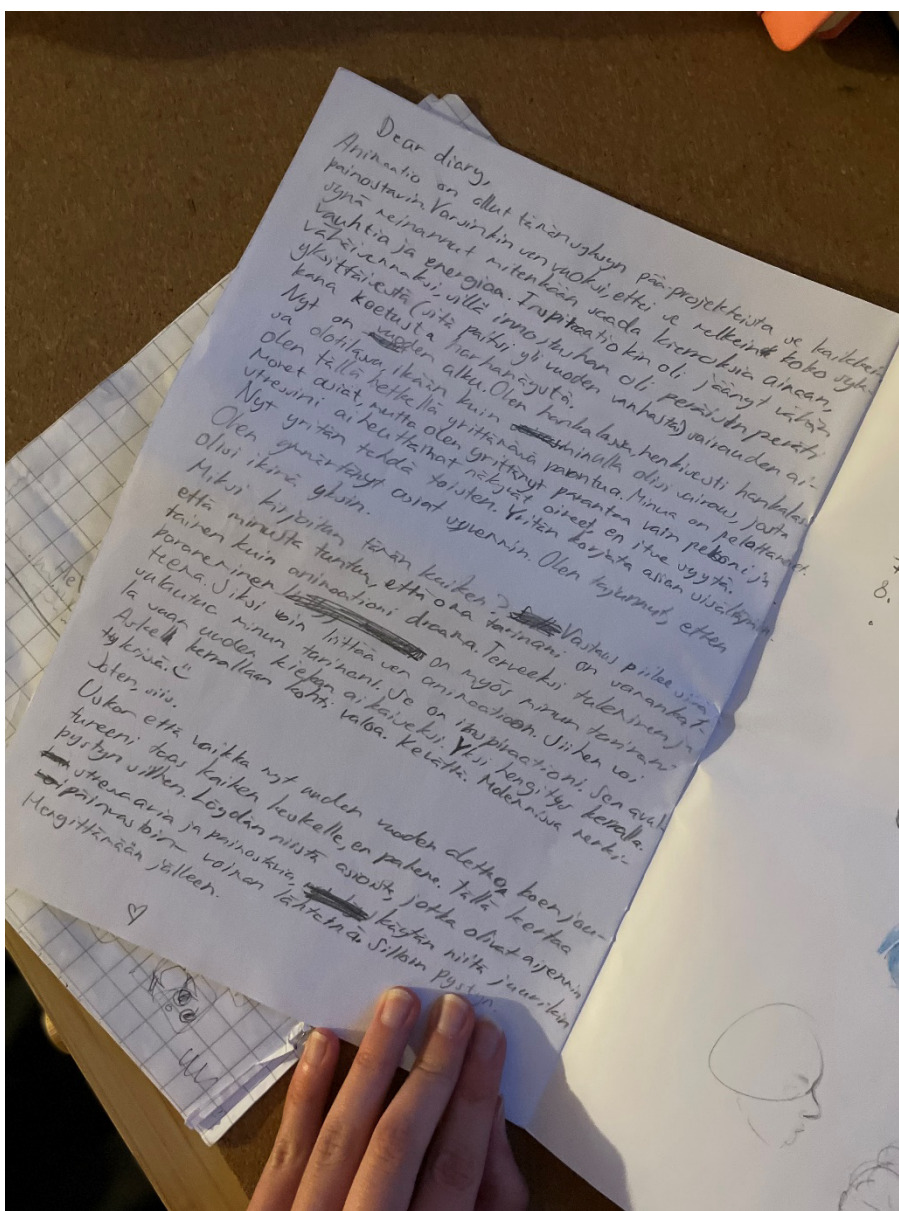 Dear diary,
Animaatio on ollut tämän syksyn pääprojekteista se kaikkein
painostavin. Varsinkin sen vuoksi, ettei se melkein koko syk-
synä meinannut mitenkään saada kierroksia aikaan,
vauhtia ja energiaa. Inspiraatiokin oli jäänyt vähän
vähäisemmäksi, sillä innostushan oli peräisin peräti
yksittäisestä (sitä paitsi yli vuoden vanhasta) sairauden ai-
kana koetusta harhanäystä.
Nyt on vuoden alku. Olen hankalassa, henkisesti hankalas-
sa olotilassa, ikään kuin minulla olisi sairaus, josta
olen tällä hetkellä yrittämässä parantua. Minua on pelottaneet
monet asiat, mutta olen yrittänyt parantaa vain pelkoni ja
stressini aiheuttamat näkyvät oireet, en itse syytä.
Nyt yritän tehdä toisten. Yritän korjata asian sisältäpäin.
Olen ymmärtänyt asiat syvemmin. Olen tajunnut, etten
olisi ikinä yksin.
Miksi kirjoitan tämän kaiken? Vastaus piilee siinä,
että minusta tuntuu, että oma tarinani on samankal-
tainen kuin animaationi draama. Terveeksi tuleminen ja
paraneminen on myös minun tarinani
teema. Siksi voin liittää sen animaatioon. Siihen voi
vaikuttaa minun tarinani. Se on inspiraationi. Sen aval-
la saan uuden kiekan aikaiseksi. Yksi hengitys kerralla.
Askel kerrallaan kohti valoa. Kevättä. Molemmissa merki-
tyksissä.
Joten, siis.
Uskon että vaikka nyt uuden vuoden alettua koen jou-
tuneeni taas kaiken keskelle, en pahene. Tällä kertaa
pystyn siihen. Löydän niistä asioista, jotka olivat aiemmin
stressaavia ja painostavia, käytän niitä juurikin
päinvastoin voiman lähteinä. Silloin pystyn
Hengittämään jälleen.
♡
8.